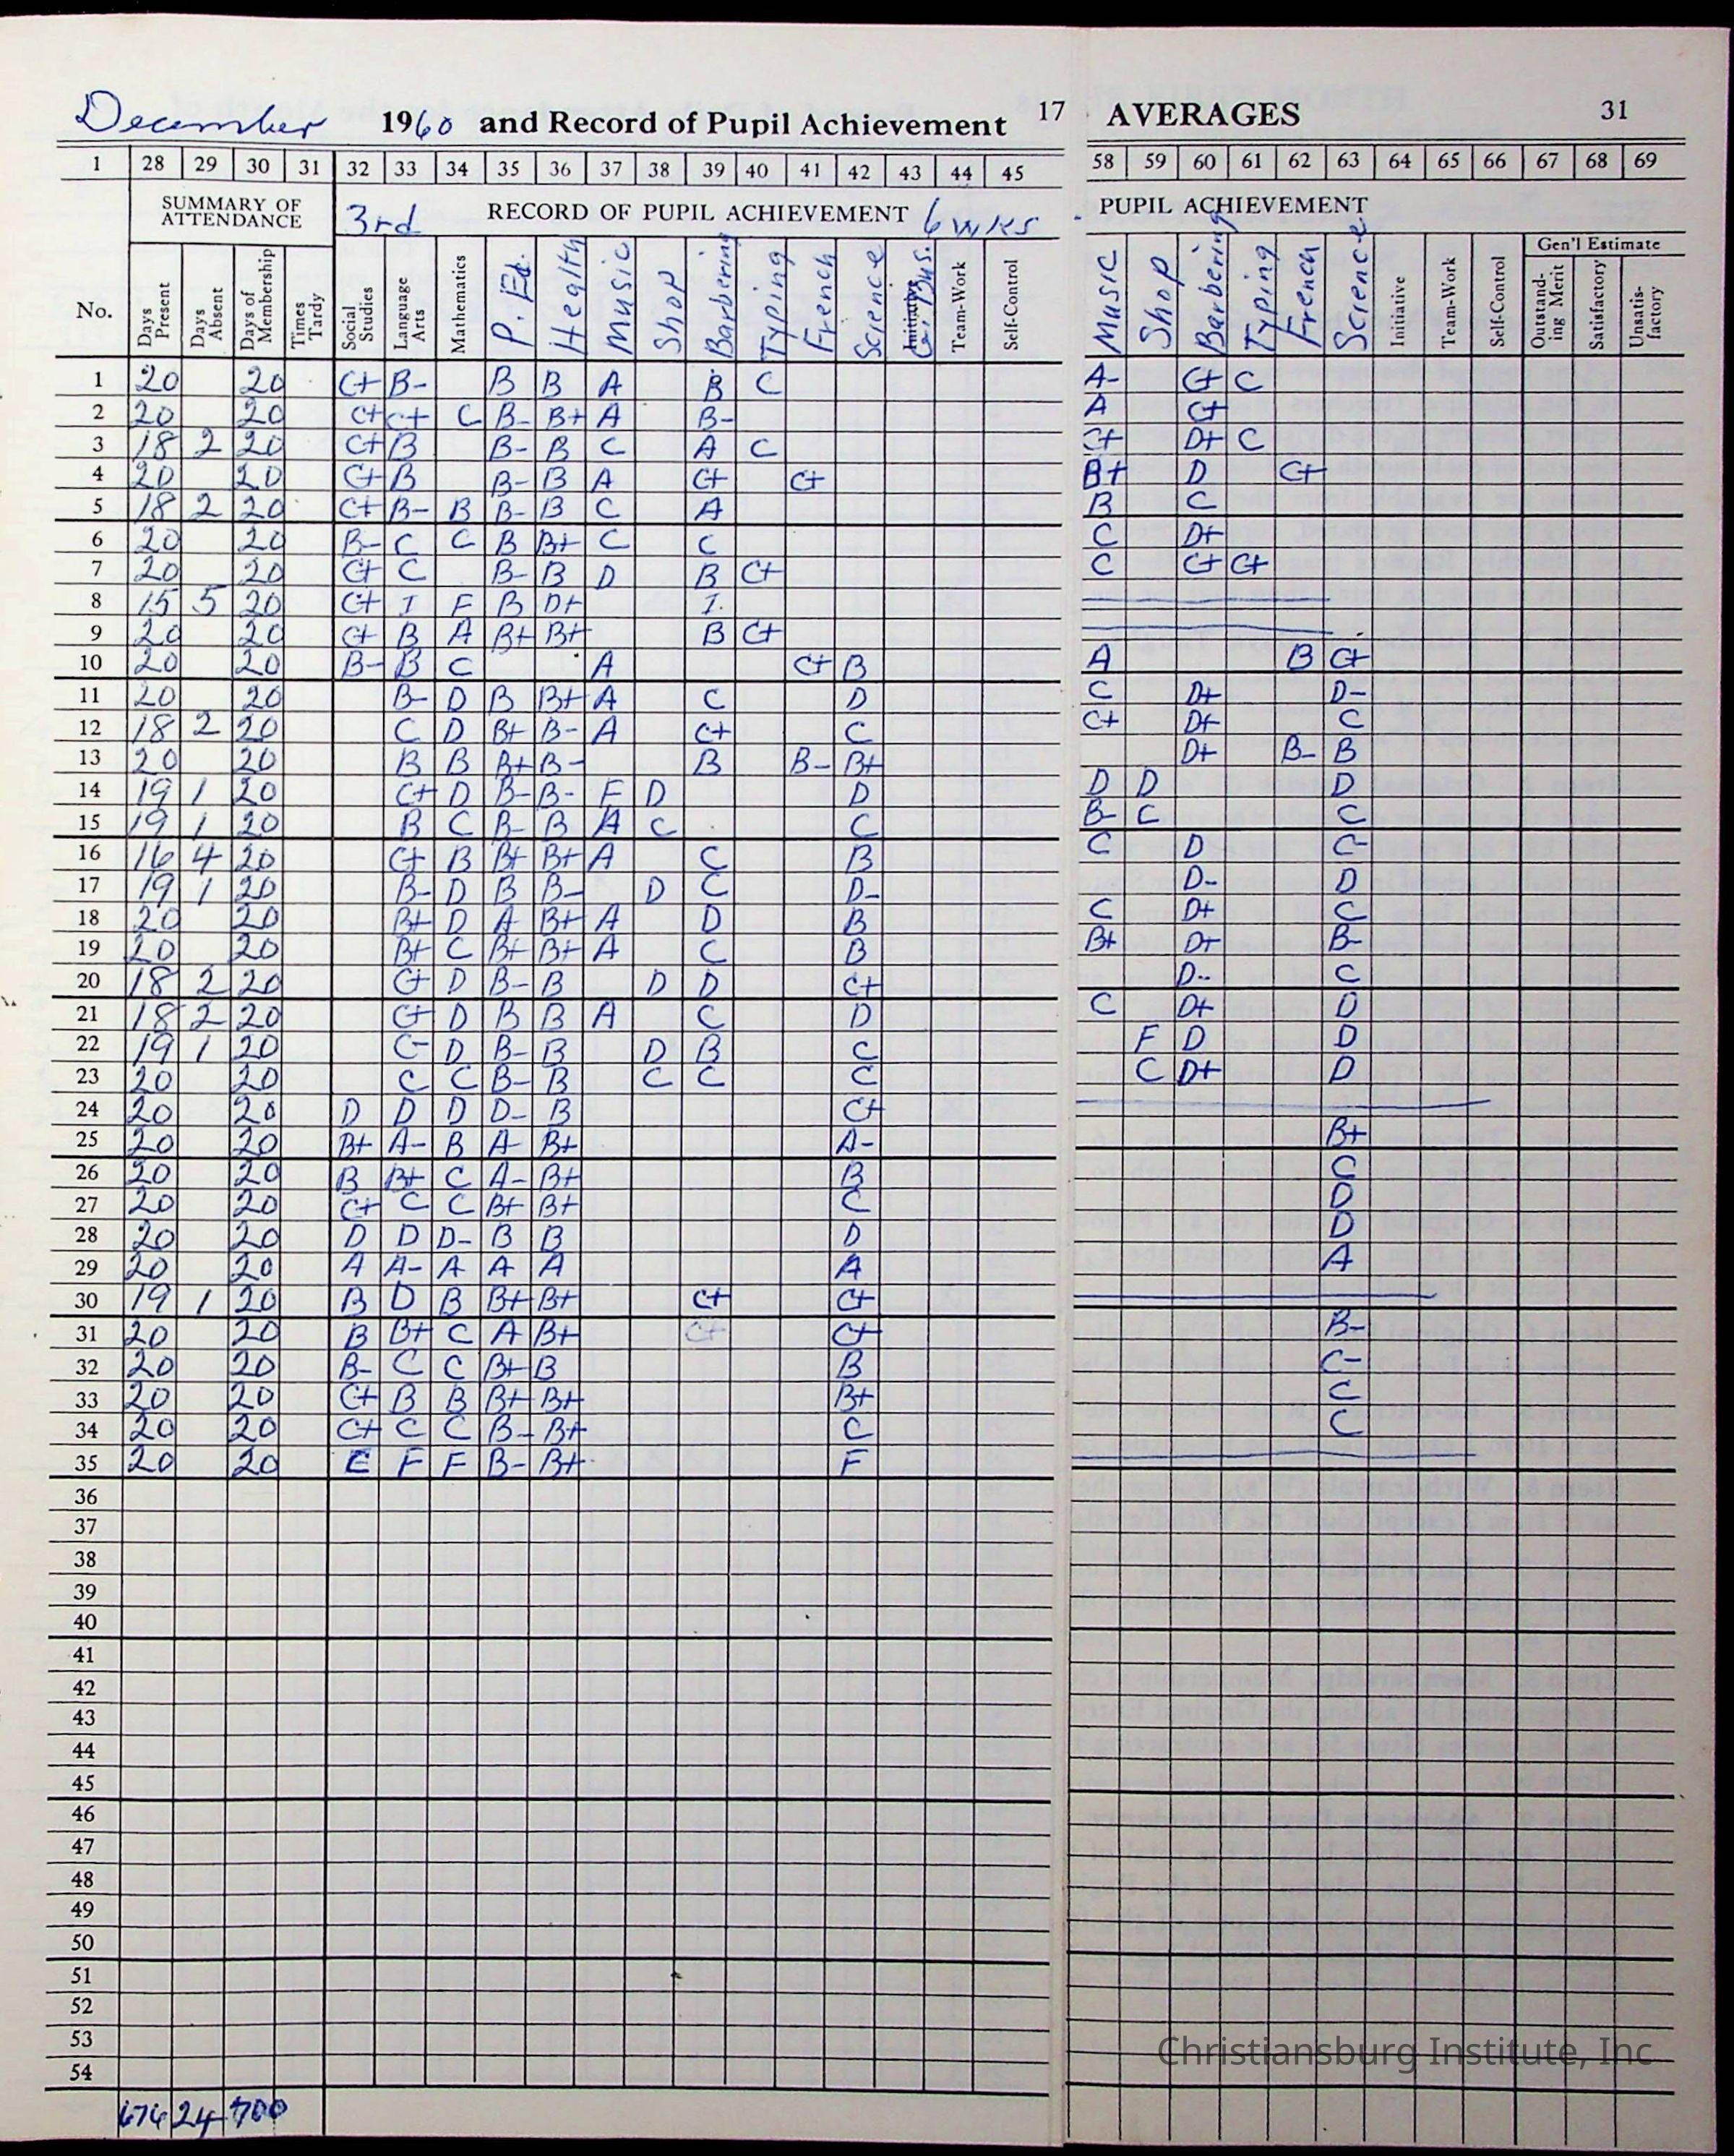 December 1960 and Record of Pupil Achievement 17 AVERAGES 31
1 28 29 30 31 32 33 34 35 36 37 38 39 40 41 42 43 44 45 58 59 60 61 62 63 64 65 66 67 68 69
SUMMARY OF ATTENDANCE 3rd RECORD OF PUPIL ACHIEVEMENT 6 wks PUPIL ACHIEVEMENT
Gen'l Estimate
No. Days Present Days Absent Days of Membership Times Tardy Social Studies Language Arts Mathematics P. Ed. Health Music Shop Barbering Typing French Science Initiative Bus. Team-Work Self-Control Music Shop Barbering Typing French Science Initiative Team-Work Self-Control Outstanding Merit Satisfactory Unsatisfactory
1 20 20 C+ B- B B A B C A- C+ C
2 20 20 C+ C+ C B- B+ A B- A C+
3 18 2 20 C+ B B- B C A C C+ D+ C
4 20 20 C+ B B- B A C+ C+ B+ D C+
5 18 2 20 C+ B- B B- B C A B C
6 20 20 B- C C B B+ C C C D+
7 20 20 C+ C B- B D B C+ C C+ C+
8 15 5 20 C+ I F B D+ I
9 20 20 C+ B A B+ B+ B C+
10 20 20 B- B C A C+ B A B C+
11 20 20 B- D B B+ A C D C D+ D-
12 18 2 20 C D B+ B- A C+ C C+ D+ C
13 20 20 B B B+ B- B B- B+ D+ B- B
14 19 1 20 C+ D B- B- F D D D D D
15 19 1 20 B C B- B A C C B- C C
16 16 4 20 C+ B B+ B+ A C B C D C-
17 19 1 20 B- D B B- D C D- D- D
18 20 20 B+ D A B+ A D B C D+ C
19 20 20 B+ C B+ B+ A C B B+ D+ B-
20 18 2 20 C+ D B- B D D C+ D- C
21 18 2 20 C+ D B B A C D C D+ D
22 19 1 20 C- D B- B D B C F D D
23 20 20 C C B- B C C C C D+ D
24 20 20 D D D D- B C+
25 20 20 B+ A- B A- B+ A- B+
26 20 20 B B+ C A- B+ B C
27 20 20 C+ C C B+ B+ C D
28 20 20 D D D- B B D D
29 20 20 A A- A A A A A
30 19 1 20 B D B B+ B+ C+ C+
31 20 20 B B+ C A B+ C+ C+ B-
32 20 20 B- C C B+ B B C-
33 20 20 C+ B B B+ B+ B+ C
34 20 20 C+ C C B- B+ C C
35 20 20 E F F B- B+ F
36
37
38
39
40
41
42
43
44
45
46
47
48
49
50
51
52
53
54
676 24 700
Christiansburg Institute, Inc